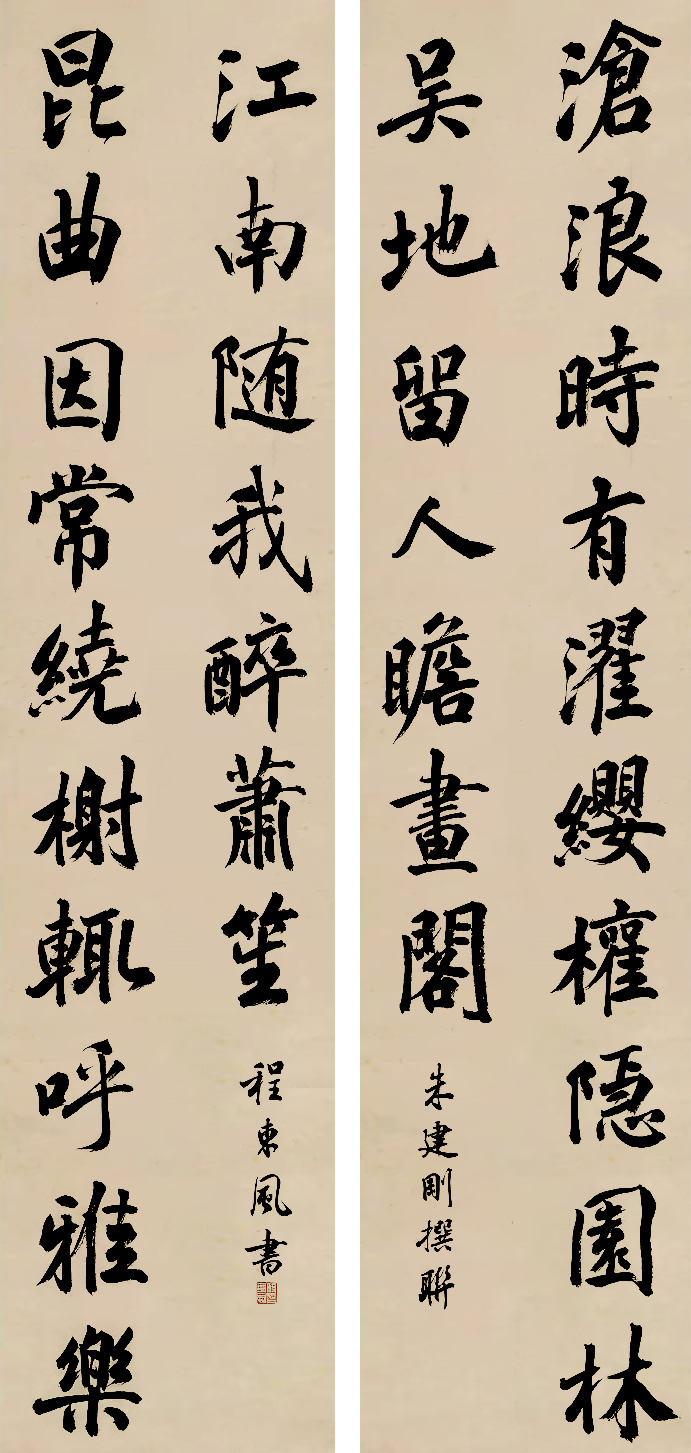 滄浪時有濯纓權隐園林
吴地留人瞻畫閣
朱建剛撰聯
昆曲因常繞榭輒呼雅樂
江南随我醉蕭笙
程東風書